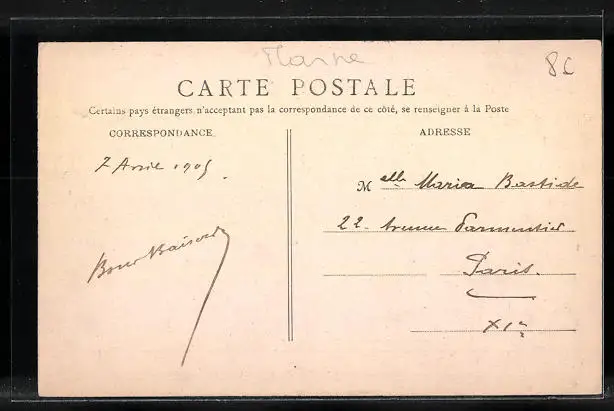 Marne
8€
CARTE POSTALE
Certains pays étrangers n'acceptant pas la correspondance de ce côté, se renseigner à la Poste
CORRESPONDANCE
ADRESSE
7 Avril 1905.
Melle Maria Bastide
22 - Avenue Parmentier
Bons Baisers
Paris.
XIe